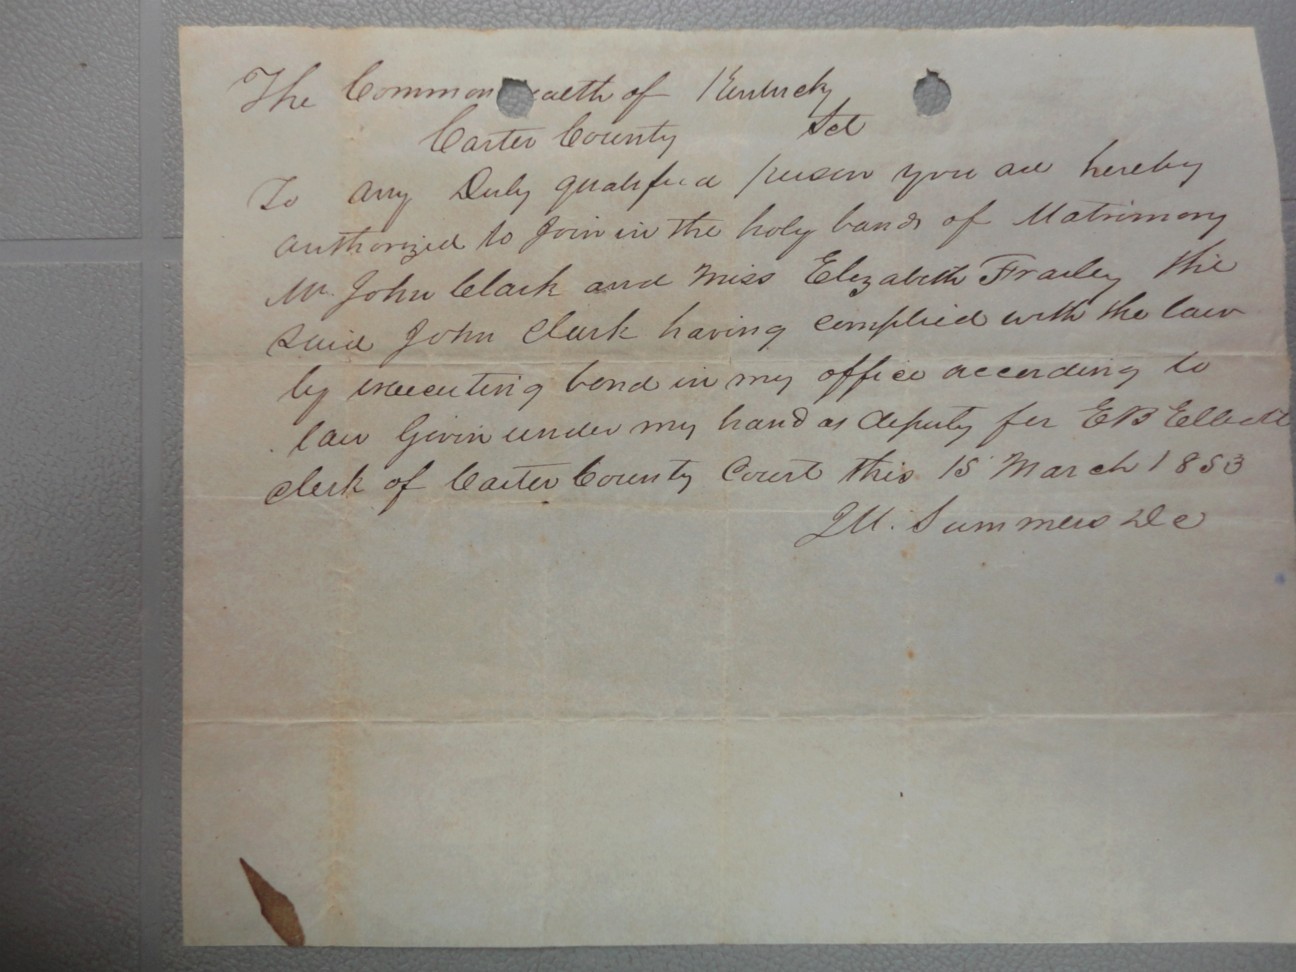 The Common ealth of Kentucky
Carter County Sct
To any Duly qualified person you are hereby
authorized to Join in the holy bands of Matrimony
Mr. John Clark and Miss Elizabeth Fraley the
said John Clark having complied with the law
by executing bond in my office according to
law Given under my hand as deputy for E B Elliott
clerk of Carter County Court this 15 March 1853
Summers D c